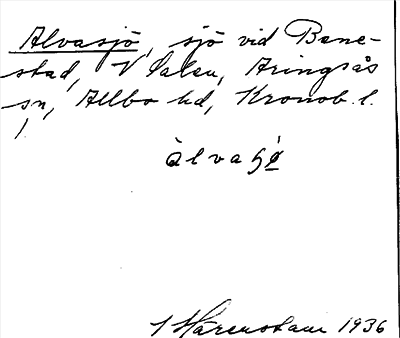 Alvasjö, sjö vid Bene-
stad, V Salen, Aringsås
sn, Allbo hd, Kronob. l.
àlvaʂø̀
I Härenstam 1936